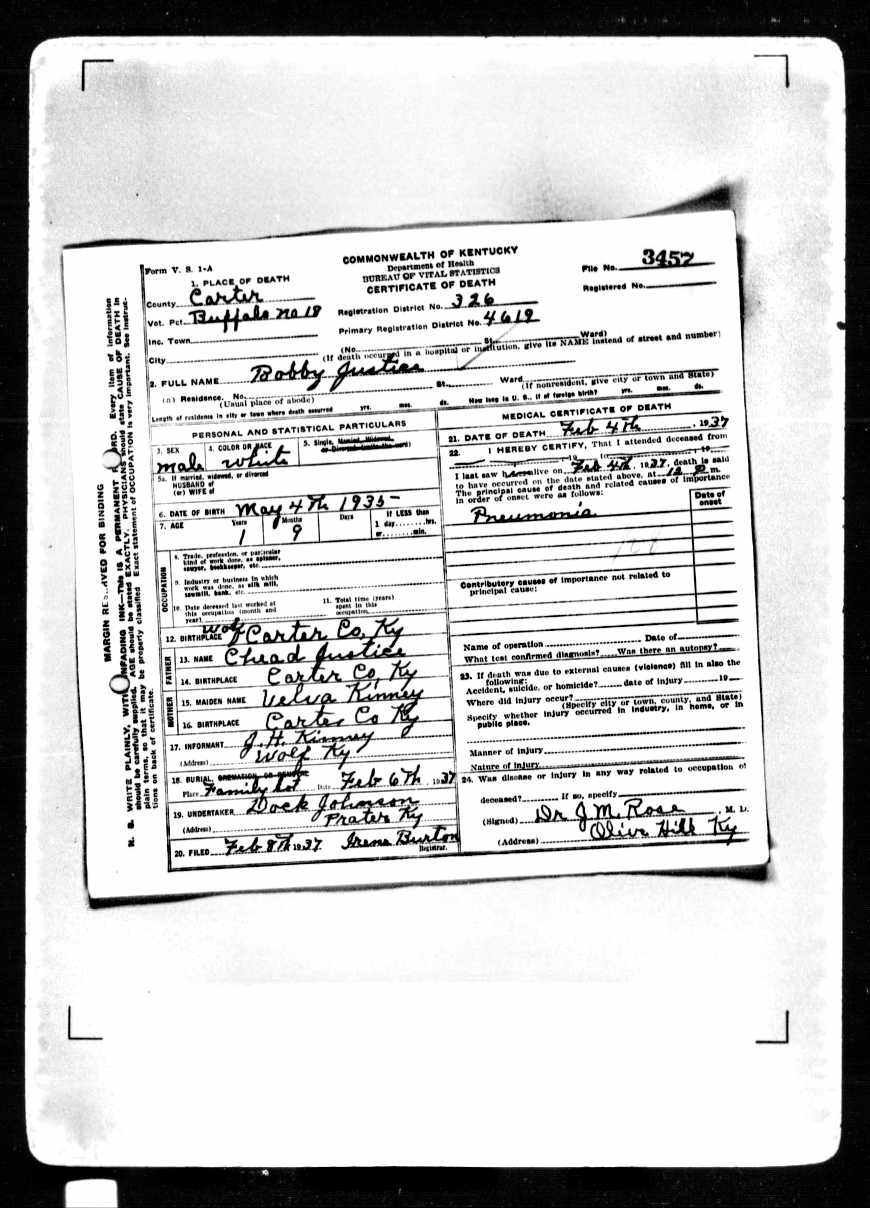 Form V. S. 1-A
COMMONWEALTH OF KENTUCKY
Department of Health
BUREAU OF VITAL STATISTICS
CERTIFICATE OF DEATH
File No. 3457
Registered No.
1. PLACE OF DEATH
County Carter
Vot. Pct. Buffalo no 18
Inc. Town
City
Registration District No. 326
Primary Registration District No. 4619
(No. St. Ward)
(If death occurred in a hospital or institution, give its NAME instead of street and number)
2. FULL NAME Bobby Justice
(a) Residence. No. St., Ward
(Usual place of abode) (If nonresident, give city or town and State)
Length of residence in city or town where death occurred yrs. mos. ds. How long in U. S., if of foreign birth? yrs. mos. ds.
PERSONAL AND STATISTICAL PARTICULARS
3. SEX male
4. COLOR OR RACE white
5. Single, Married, Widowed, or Divorced (write the word)
5a. If married, widowed, or divorced
HUSBAND of
(or) WIFE of
6. DATE OF BIRTH May 4th 1935
7. AGE Years Months Days If LESS than
1 9 1 day hrs.
or min.
OCCUPATION
8. Trade, profession, or particular
kind of work done, as spinner,
sawyer, bookkeeper, etc.
9. Industry or business in which
work was done, as silk mill,
sawmill, bank, etc.
10. Date deceased last worked at
this occupation (month and
year)
11. Total time (years)
spent in this
occupation
12. BIRTHPLACE Wolf Carter Co, Ky
FATHER
13. NAME Chead Justice
14. BIRTHPLACE Carter Co Ky
MOTHER
15. MAIDEN NAME Velva Kinney
16. BIRTHPLACE Carter Co Ky
17. INFORMANT J. H. Kinney
(Address) Wolf Ky
18. BURIAL, CREMATION OR REMOVAL
Place Family Lot Date Feb 6th, 1937
19. UNDERTAKER Dock Johnson
(Address) Prater Ky
20. FILED Feb 8th 1937 Irene Burton
Registrar.
MEDICAL CERTIFICATE OF DEATH
21. DATE OF DEATH Feb 4th, 1937
22. I HEREBY CERTIFY, That I attended deceased from
, 19 , to , 19
I last saw him alive on Feb 4th, 1937, death is said
to have occurred on the date stated above, at 12 P m.
The principal cause of death and related causes of importance
in order of onset were as follows:
Date of
onset
Pneumonia
Contributory causes of importance not related to
principal cause:
Name of operation Date of
What test confirmed diagnosis? Was there an autopsy?
23. If death was due to external causes (violence) fill in also the
following:
Accident, suicide, or homicide? date of injury 19
Where did injury occur?
(Specify city or town, county, and State)
Specify whether injury occurred in industry, in home, or in
public place.
Manner of injury
Nature of injury
24. Was disease or injury in any way related to occupation of
deceased? If so, specify
(Signed) Dr J. M. Rose, M. D.
(Address) Olive Hill Ky
MARGIN RESERVED FOR BINDING
N. B. WRITE PLAINLY, WITH UNFADING INK—This IS A PERMANENT RECORD. Every item of information
should be carefully supplied. AGE should be stated EXACTLY. PHYSICIANS should state CAUSE OF DEATH in
plain terms, so that it may be properly classified. Exact statement of OCCUPATION is very important. See instruc-
tions on back of certificate.